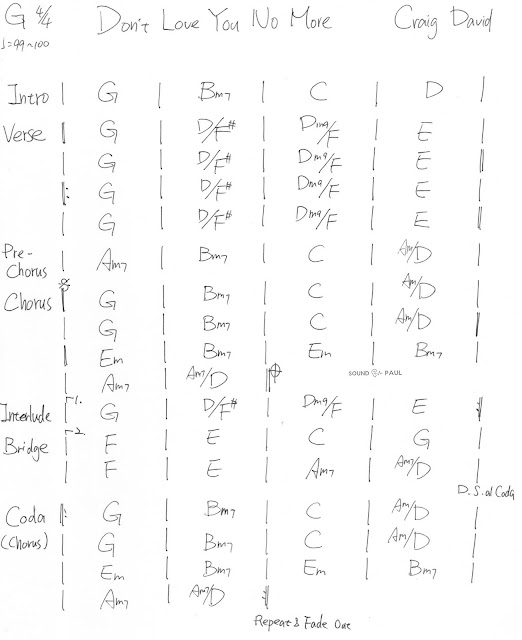 G 4/4 Don't Love You No More Craig David
♩=99~100
Intro | G | Bm7 | C | D |
Verse || G | D/F# | Dm9/F | E |
| G | D/F# | Dm9/F | E ||
||: G | D/F# | Dm9/F | E |
| G | D/F# | Dm9/F | E ||
Pre-
Chorus | Am7 | Bm7 | C | Am/D |
𝄋
Chorus || G | Bm7 | C | Am/D |
| G | Bm7 | C | Am/D ||
|| Em | Bm7 | Em | Bm7 |
| Am7 | Am7/D || 𝄌 SOUND BY PAUL
Interlude | 1. G | D/F# | Dm9/F | E :||
Bridge | 2. F | E | C | G |
| F | E | Am7 | Am7/D |
D.S. al Coda
Coda ||: G | Bm7 | C | Am/D |
(Chorus) | G | Bm7 | C | Am/D |
| Em | Bm7 | Em | Bm7 |
| Am7 | Am7/D :||
Repeat & Fade Out